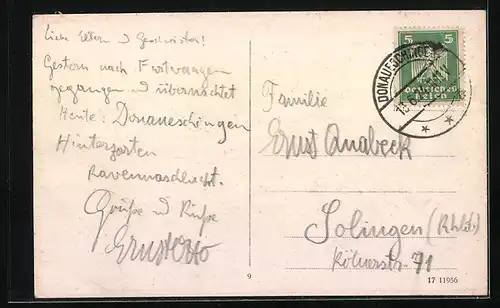 Liebe Eltern u Geschwister!
Gestern nach Furtwangen
gegangen u übernachtet
Heute: Donaueschingen
Hinterzarten
Ravennaschlucht.
Grüße u Küsse
Ernst Otto
Familie
Ernst Quabeck
Solingen (Rhld.)
Kölnerstr 71
5 5
Deutsches
Reich
DONAUESCHINGEN
9
17 11956